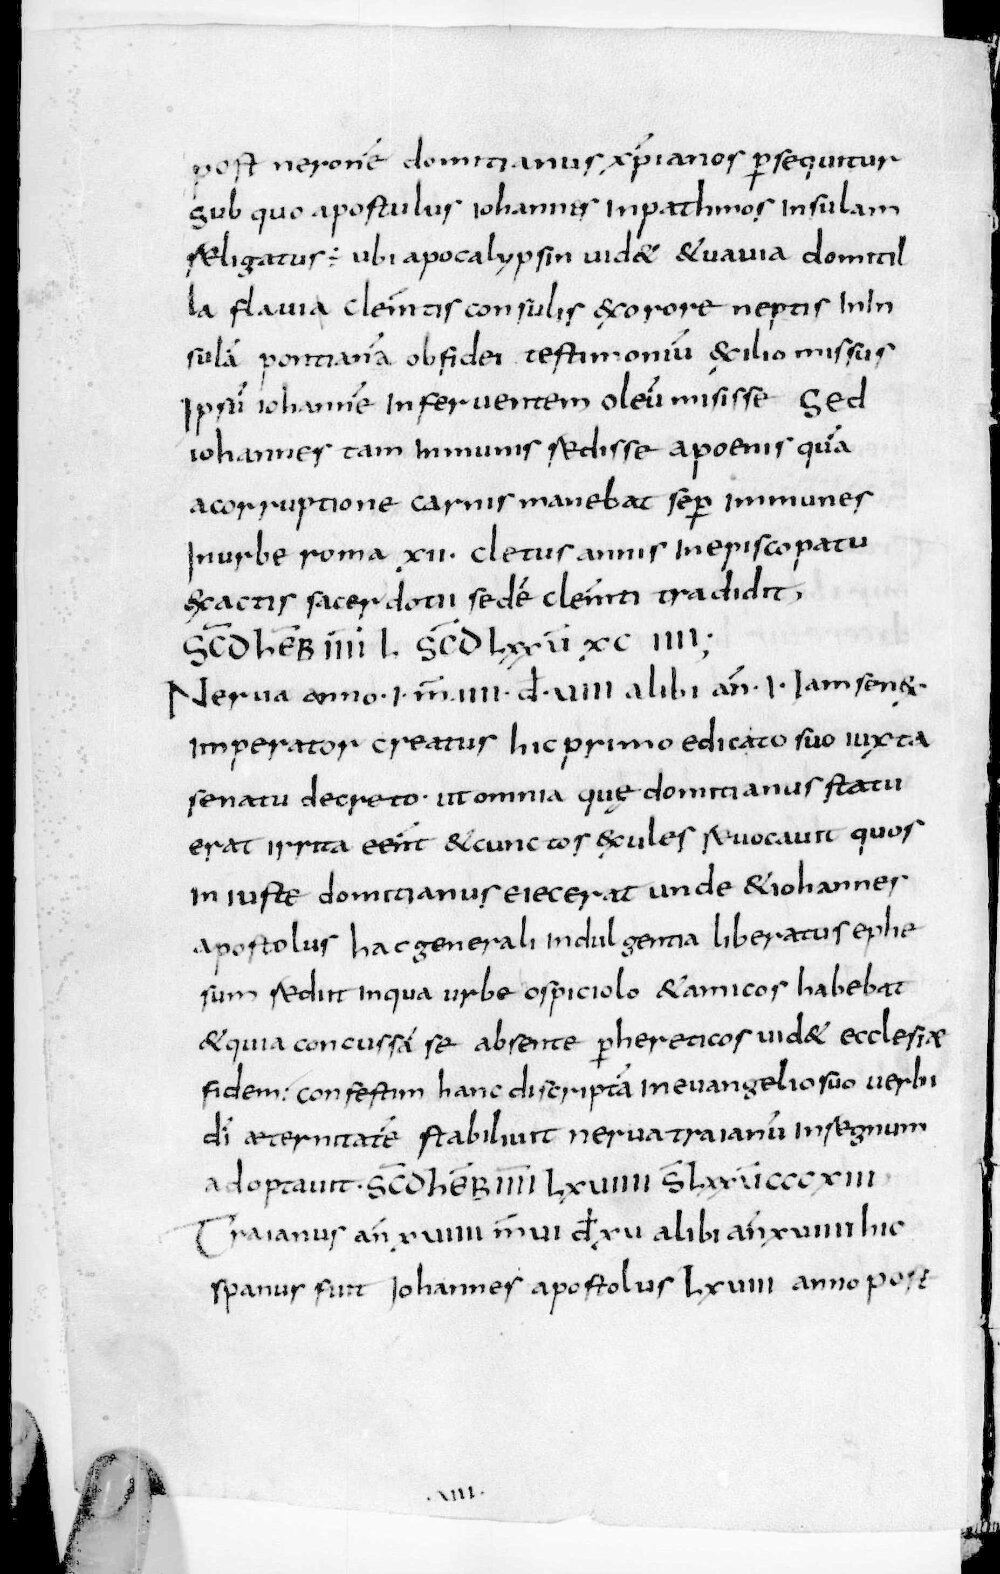 post neronē domitianus xp̄ianos ꝑsequitur
sub quo apostulus iohannes inpathmos insulam
religatus : ubi apocalypsin uid& &uauia domitil
la flauia clem̄tis consulis &xorore neptis inin
sulā pontianā obfidei testimoniū &xilio missus
ipsū iohannē inferuentem oleū misisse sed
iohannes tam inmunis redisse apoenis quā
acorruptione carnis manebat semꝑ immunes
inurbe roma xii· cletus annis inepiscopatu
&xactis sacerdotii sedē clem̄ti tradidit,
SC̄D hEB̄ IIII L SC̄D Lxxii xc IIII;
Nerua anno· I· m̄· IIII· đ· uIIII alibi an̄· I· Iam sen&x
imperator creatus hic primo edicato suo iuxta
senatu decreto· ut omnia quę domitianus statu
erat irrita een̄t &cunctos &xules reuocauit quos
in iuste domitianus eiecerat unde &iohannes
apostolus hac generali indulgentia liberatus ephe
sum rediit inqua urbe ospiciolo &amicos habebat
&quia concussā se absente ꝑhereticos uid& ecclesiæ
fidem : confestim hanc discriptā ineuangelio suo uerbi
dī æternitatē stabiliuit nerua traianū inregnum
adoptauit· SC̄D hEB̄ IIII LxuIIII S̄ Lxxii ccc xIII
Traianus an̄ xuIIII m̄ uI đ xu alibi an̄ xuIIII hic
spanus fuit Iohannes apostolus LxuIII anno post
·xIII·